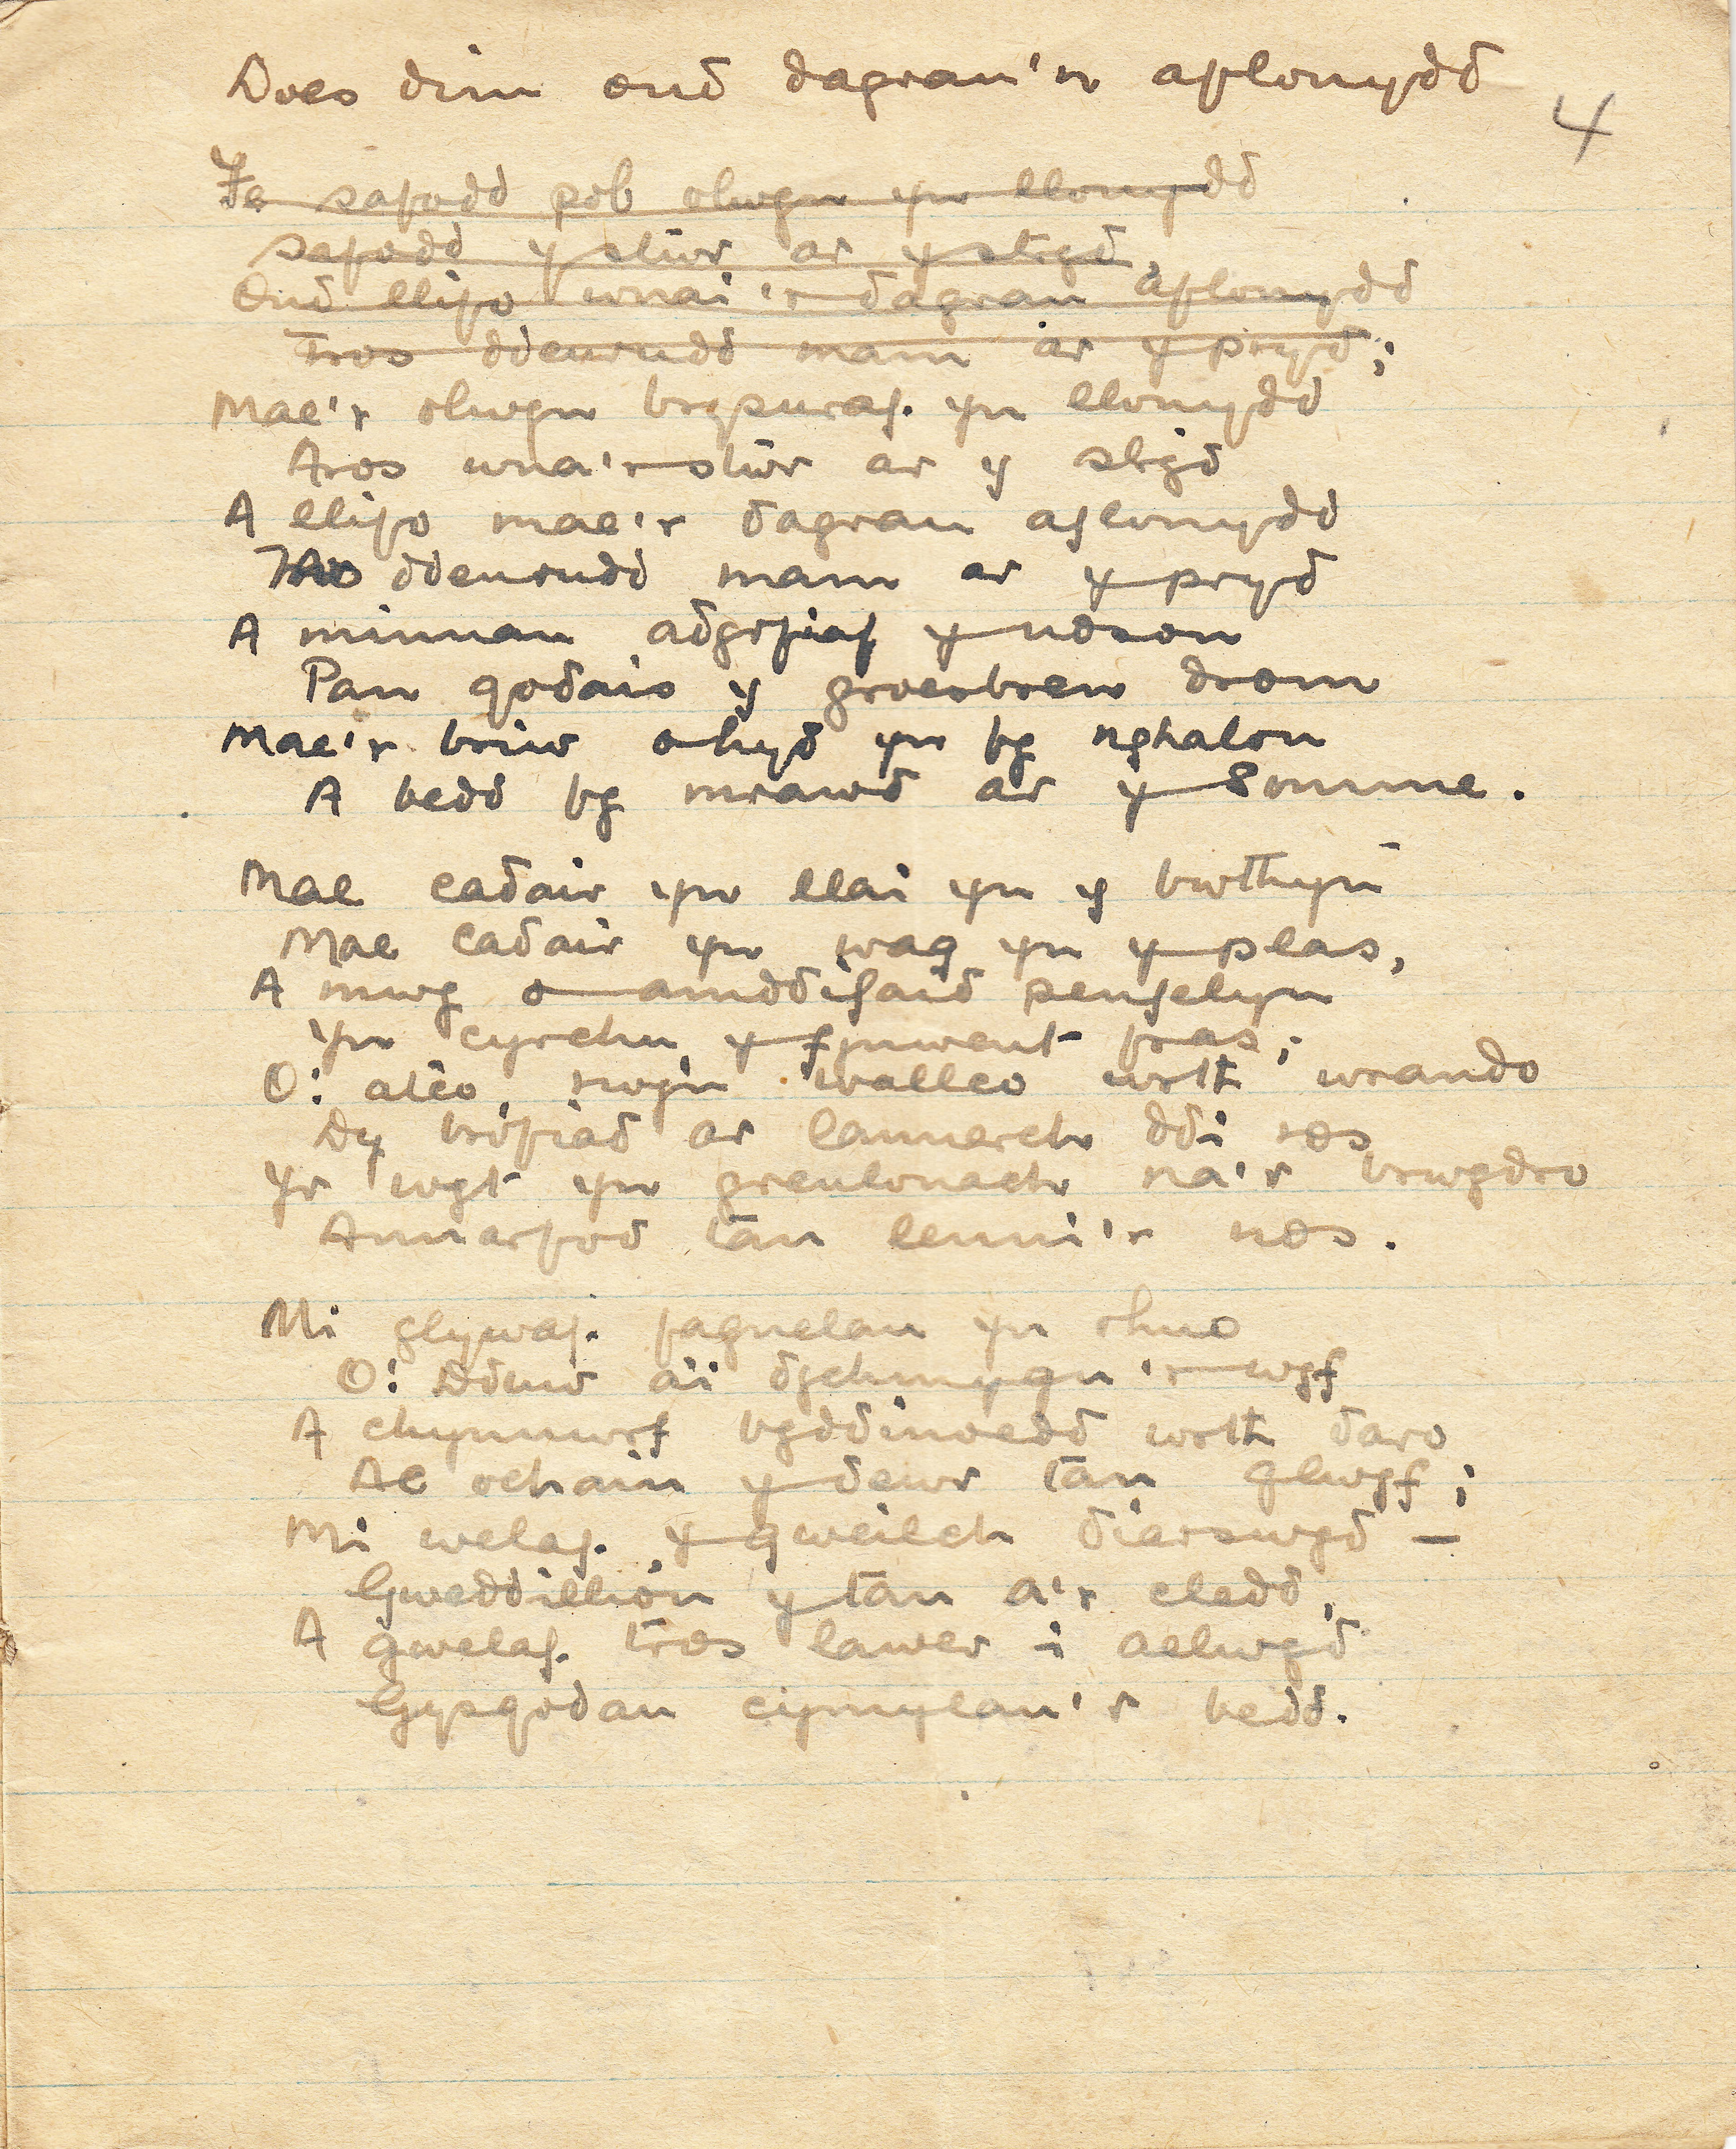 Does dim ond dagrau'n aflonydd
4
Fe safodd pob olwyn yn llonydd
safodd y stŵr ar y stryd,
Ond llifo wnai'r dagrau aflonydd
Tros ddeurudd mam ar y pryd;
Mae'r olwyn brysuraf yn llonydd
Aros wna'r stŵr ar y stryd
A llifo mae'r dagrau aflonydd
Tros ddeurudd mam ar y pryd
A minnau adgofiaf y noson
Pan godais y groesbren drom
Mae'r briw o hyd yn fy nghalon
A bedd fy mrawd ar y Somme.
Mae cadair yn llai yn y bwthyn
Mae cadair yn wag yn y plas,
A mwg o amddifaid penfelyn
Yn cyrchu y fynwent fras;
O! atco, rwy'n walleo wrth wrando
Dy brofiad ar lannerch ddi ros
Yr wyt yn greulonach na'r frwydro
Annarfod tan lenni'r nos.
Mi glywaf fagnelau yn rhuo
O! Dduw ai dychmygu'r wyf
A chynnwrf byddinoedd wrth daro
Ac ochain y dewr tan glwyf;
Mi welaf y gweilch diarswyd —
Gweddillion y tân a'r cledd,
A gwelaf tros lawer i aelwyd
Gysgodau cymylau'r bedd.